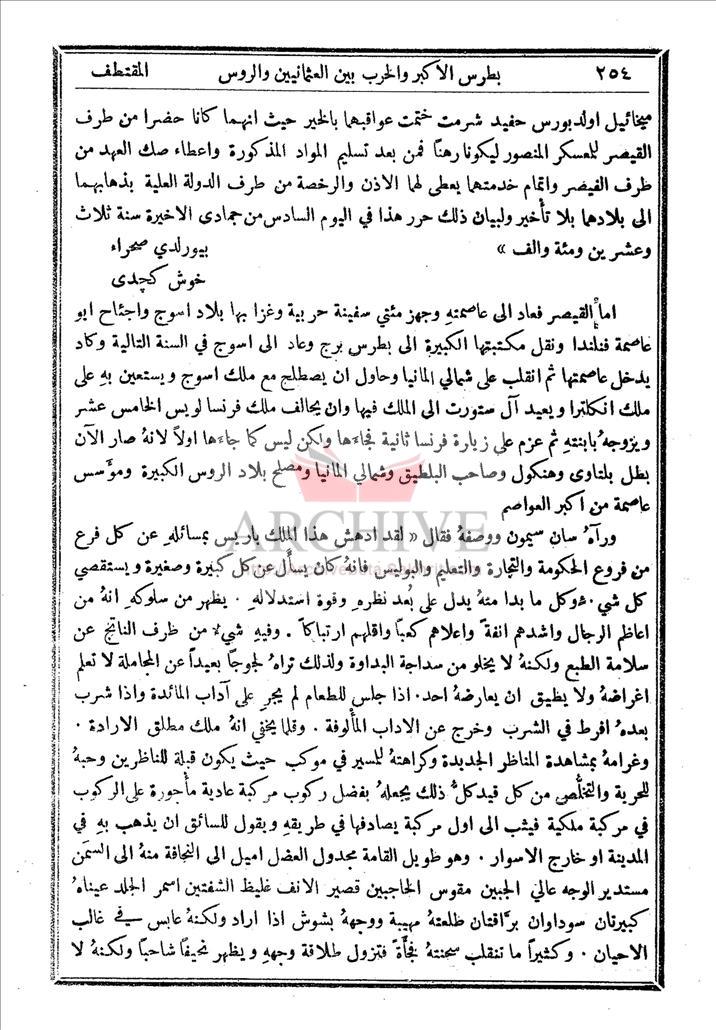 ٢٥٤ بطرس الاكبر والحرب بين العثمانيين والروس المقتطف
ميخائيل اولدبورس حفيد شرمت ختمت عواقبهما بالخير حيث انهما كانا حضرا من طرف
القيصر للمعسكر المنصور ليكونا رهناً فمن بعد تسليم المواد المذكورة واعطاء صك العهد من
طرف القيصر واتمام خدمتهما يعطى لهما الاذن والرخصة من طرف الدولة العلية بذهابهما
الى بلادهما بلا تأخير ولبيان ذلك حرر هذا في اليوم السادس من جمادى الاخيرة سنة ثلاث
وعشرين ومئة والف » بيورلدي صحراء
خوش كچدى
اما القيصر فعاد الى عاصمتهِ وجهز مئتي سفينة حربية وغزا بها بلاد اسوج واجئاح ابو
عاصمة فنلندا ونقل مكتبتها الكبيرة الى بطرس برج وعاد الى اسوج في السنة التالية وكاد
يدخل عاصمتها ثم انقلب على شمالي المانيا وحاول ان يصطلح مع ملك اسوج ويستعين بهِ على
ملك انكلترا ويعيد آل ستورت الى الملك فيها وان يحالف ملك فرنسا لويس الخامس عشر
ويزوجهُ بابنتهِ ثم عزم على زيارة فرنسا ثانية فجاءها ولكن ليس كما جاءها اولاً لانهُ صار الآن
بطل بلتاوى وهنكول وصاحب البلطيق وشمالي المانيا ومصلح بلاد الروس الكبيرة ومؤسس
عاصمة من اكبر العواصم
ورآهُ سان سيمون ووصفهُ فقال « لقد ادهش هذا الملك باريس بمسائلهِ عن كل فرع
من فروع الحكومة والتجارة والتعليم والبوليس فانهُ كان يسأل عن كل كبيرة وصغيرة ويستقصي
كل شيء وكل ما بدا منهُ يدل على بُعد نظرهِ وقوة استدلالهِ . يظهر من سلوكهِ انهُ من
اعاظم الرجال واشدهم انفةً واعلاهم كعباً واقلهم ارتباكاً . وفيهِ شيء من ظرف الناتج عن
سلامة الطبع ولكنهُ لا يخلو من سداجة البداوة ولذلك تراهُ لجوجاً بعيداً عن المجاملة لا تعلم
اغراضهُ ولا يطيق ان يعارضهُ احد. اذا جلس للطعام لم يجرِ على آداب المائدة واذا شرب
بعدهُ افرط في الشرب وخرج عن الاداب المألوفة . وقلما يخفي انهُ ملك مطلق الارادة .
وغرامهُ بمشاهدة المناظر الجديدة وكراهتهُ للمسير في موكب حيث يكون قبلة للناظرين وحبهُ
للحرية والتخلُّص من كل قيد كلُّ ذلك يجعلهُ يفضل ركوب مركبة عادية مأجورة على الركوب
في مركبة ملكية فيثب الى اول مركبة يصادفها في طريقهِ ويقول للسائق ان يذهب بهِ في
المدينة او خارج الاسوار . وهو طويل القامة مجدول العضل اميل الى النحافة منهُ الى السمَن
مستدير الوجه عالي الجبين مقوس الحاجبين قصير الانف غليظ الشفتين اسمر الجلد عيناهُ
كبيرتان سوداوان برَّاقتان طلعتهُ مهيبة ووجههُ بشوش اذا اراد ولكنهُ عابس في غالب
الاحيان . وكثيراً ما تنقلب سحنتهُ فجأةً فتزول طلاقة وجههِ ويظهر نحيفاً شاحباً ولكنهُ لا
ARCHIVE